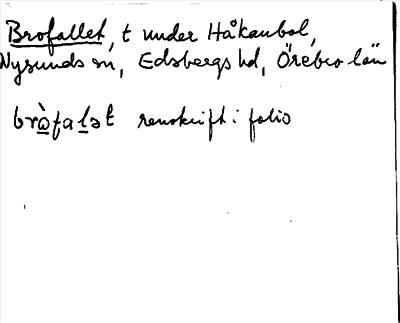 Brofallet, t under Håkanbol,
Nysunds sn, Edsbergs hd, Örebro län
bròfalət renskrift i folio